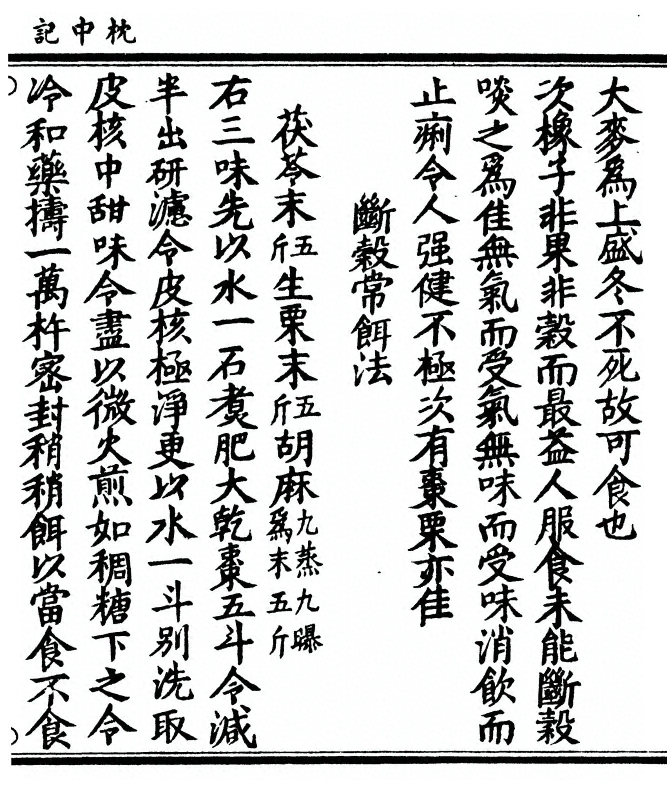 枕中記
大麥爲上盛冬不死故可食也
次橡子非果非穀而最益人服食未能斷穀
啖之爲佳無氣而受氣無味而受味消飲而
止痢令人强健不極次有棗栗亦佳
斷穀常餌法
茯苓末五斤生栗末五斤胡麻九蒸九曝爲末五斤
右三味先以水一石煑肥大乾棗五斗令減
半出研濾令皮核極淨更以水一斗別洗取
皮核中甜味令盡以微火煎如稠糖下之令
冷和藥擣一萬杵密封稍稍餌以當食不食